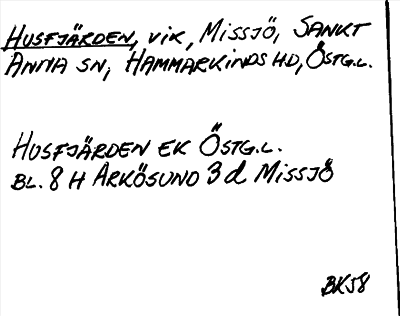 HUSFJÄRDEN, VIK, MISSJÖ, SANKT
ANNA SN, HAMMARKINDS HD, ÖSTG.L.
HUSFJÄRDEN EK ÖSTG.L.
BL. 8 H ARKÖSUND 3 d MISSJÖ
BK58